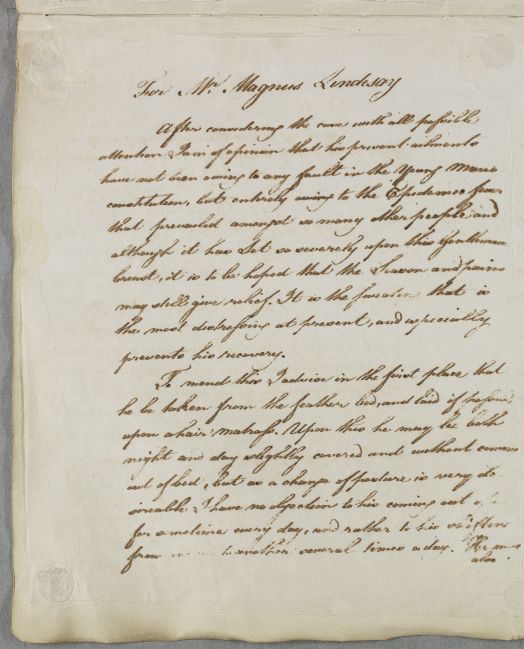 For Mr. Magnus Lindesay
After considering the case with all possible
attention I am of opinion that his present ailments
have not been owing to any fault in the Young Mans
constitution, but entirely owing to the Epidemic fever
that prevailed amongst so many other people, and
although it has set so severely upon this Gentlemans
breast, it is to be hoped that the Season and pains
may still give relief. It is the that is
the most distressing at present, and especially
prevents his recovery.
To mend this I advise in the first place that
he be taken from the feather bed, and laid if possible
upon a hair matrass. Upon this he may lie both
night and day slightly covered and without coming
out of bed, but as a change of posture is very de
sireable I have no objection to his coming out
for a metime every day, and rather to his
from to another several times a day. He may
also